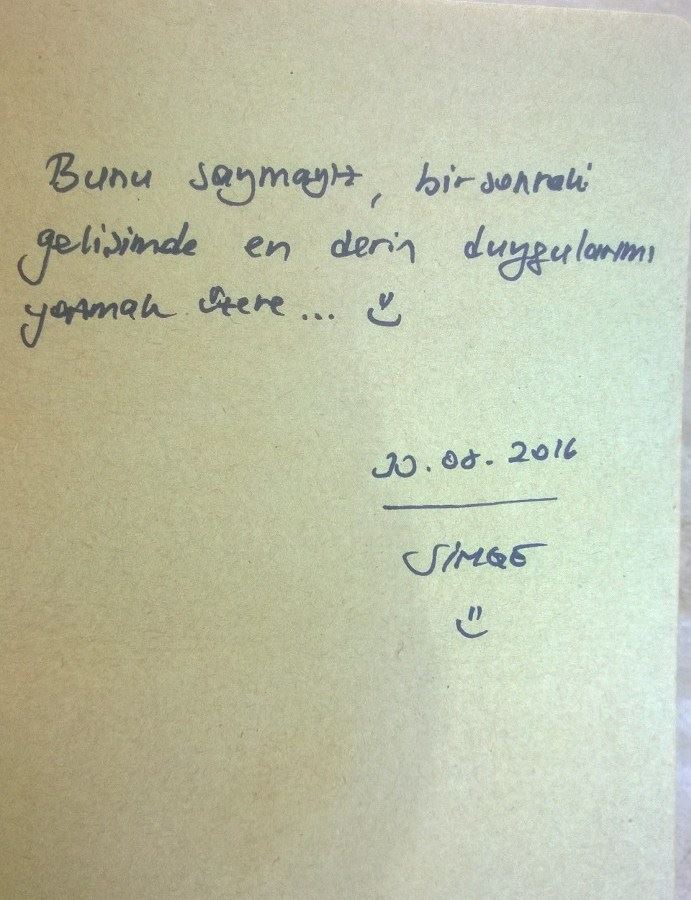 Bunu saymayız, bir sonraki
gelişimde en derin duygularımı
yazmak üzere... :)
30.08.2016
SİMGE
:)